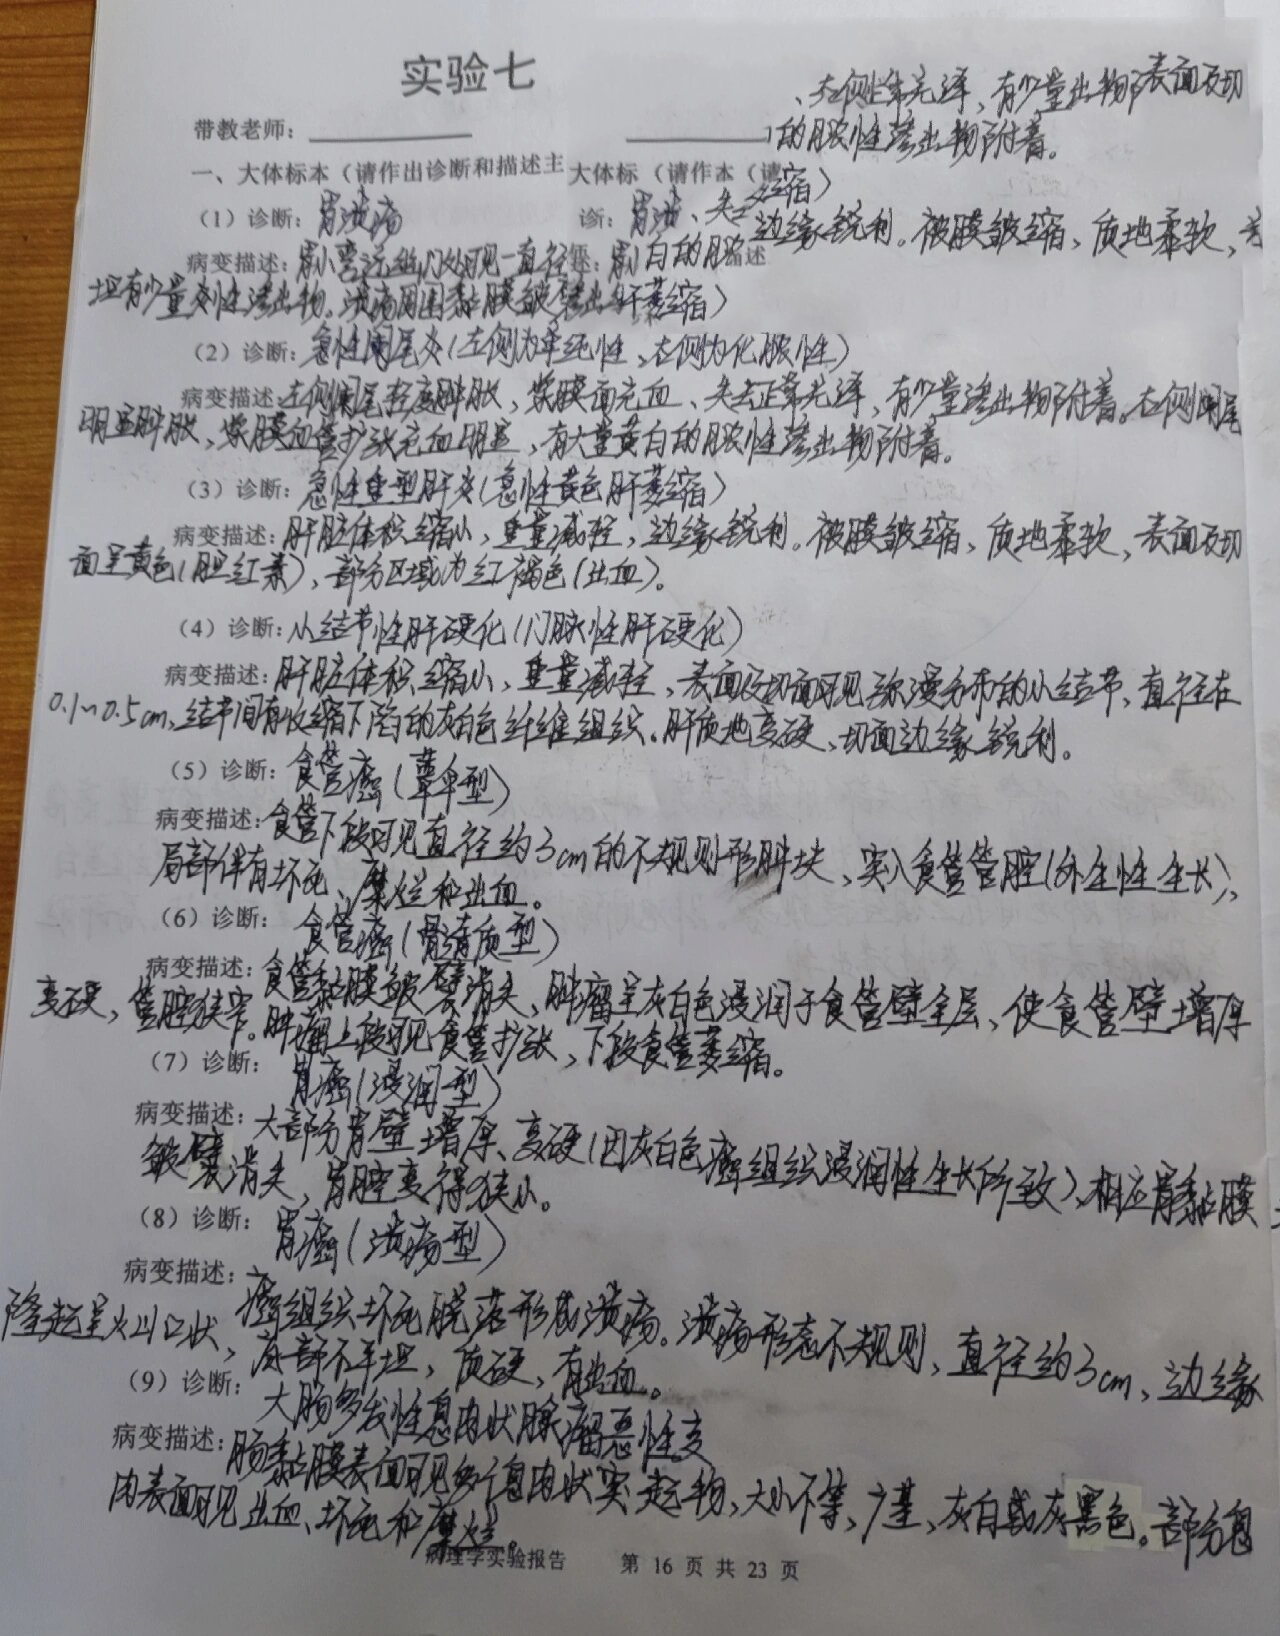 实验七
、右侧性常光泽、有少量出物附表面及切
带教老师：
的脓性渗出物附着。
一、大体标本（请作出诊断和描述主 大体标（请作本（请
缩）
（1）诊断：胃溃疡 诊：胃溃、失去 边缘锐利。被膜皱缩，质地柔软，表
病变描述：胃小弯近幽门处可见一直径 白的脓 描述
坦有少量炎性渗出物。溃疡周围黏膜皱 渗出 肝萎缩）
（2）诊断：急性阑尾炎（左侧为单纯性，右侧为化脓性）
病变描述：左侧阑尾轻度肿胀，浆膜面充血、失去正常光泽，有少量渗出物附着。右侧阑尾
明显肿胀，浆膜血管扩张充血明显，有大量黄白的脓性渗出物附着。
（3）诊断：急性重型肝炎（急性黄色肝萎缩）
病变描述：肝脏体积缩小，重量减轻，边缘锐利。被膜皱缩，质地柔软，表面及切
面呈黄色（胆红素），部分区域为红褐色（出血）。
（4）诊断：小结节性肝硬化（门脉性肝硬化）
病变描述：肝脏体积缩小，重量减轻，表面及切面可见弥漫分布的小结节，直径在
0.1~0.5cm，结节间有收缩下陷的灰白色纤维组织。肝质地变硬，切面边缘锐利。
（5）诊断：食管癌（蕈伞型）
病变描述：食管下段可见直径约3cm的不规则形肿块，突入食管管腔（外生性生长），
局部伴有坏死、糜烂和出血。
（6）诊断：食管癌（骨清质型）
病变描述：食管黏膜皱襞消失，肿瘤呈灰白色浸润于食管壁全层，使食管壁增厚
变硬，管腔狭窄。肿瘤上段可见食管扩张，下段食管萎缩。
（7）诊断：胃癌（浸润型）
病变描述：大部分胃壁增厚、变硬（因灰白色癌组织浸润性生长所致），相应胃黏膜
皱襞消失，胃腔变得狭小。
（8）诊断：胃癌（溃疡型）
病变描述：癌组织坏死脱落形成溃疡。溃疡形态不规则，直径约3cm，边缘
隆起呈火山口状，底部不平坦，质硬，有出血。
（9）诊断：大肠多发性息肉状腺瘤恶性变
病变描述：肠黏膜表面可见多个息肉状突起物，大小不等，广基，灰白或灰黑色。部分息
肉表面可见出血、坏死和糜烂。
病理学实验报告 第 16 页 共 23 页